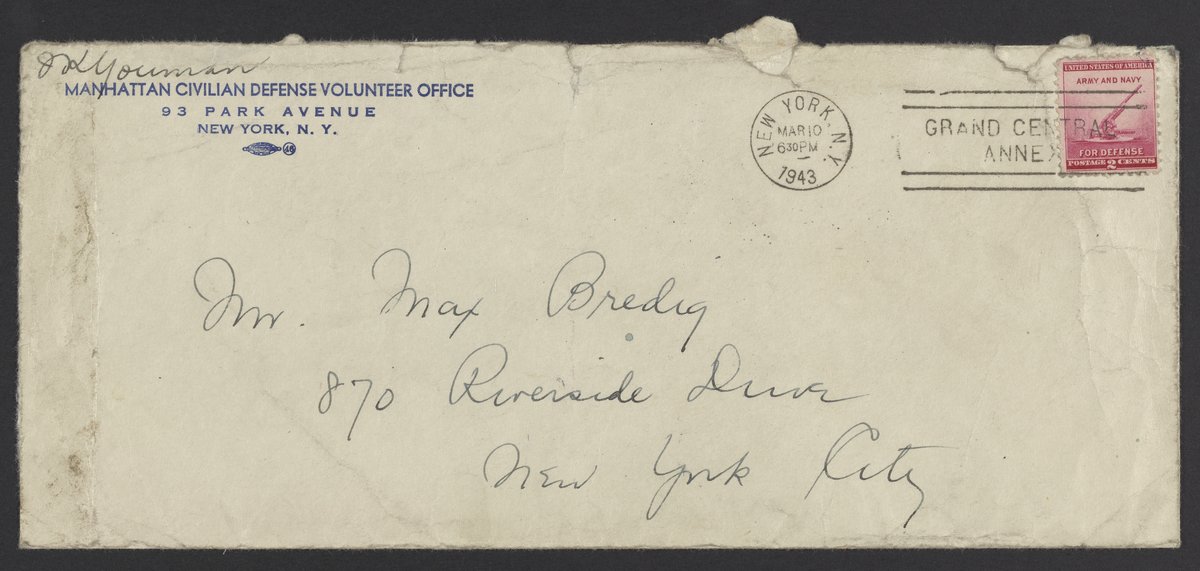 Youman
MANHATTAN CIVILIAN DEFENSE VOLUNTEER OFFICE
93 PARK AVENUE
NEW YORK, N. Y.
46
NEW YORK, N.Y.
MAR 10
6 30 PM
1943
GRAND CENTRAL
ANNEX
UNITED STATES OF AMERICA
ARMY AND NAVY
FOR DEFENSE
POSTAGE 2 CENTS
Mr. Max Bredig
870 Riverside Drive
New York City